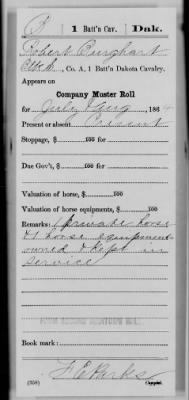 B | 1 Batt'n Cav. | Dak.
Robert Burghart
, Co. A, 1 Batt'n Dakota Cavalry.
Appears on
Company Muster Roll
for July & Aug, 186
Present or absent Present
Stoppage, $ 100 for
Due Gov't, $ 100 for
Valuation of horse, $ 100
Valuation of horse equipments, $ 100
Remarks: 1 private horse
& 1 horse equipment
owned & kept in
service
Book mark:
F E Parks
(358) Copyist.